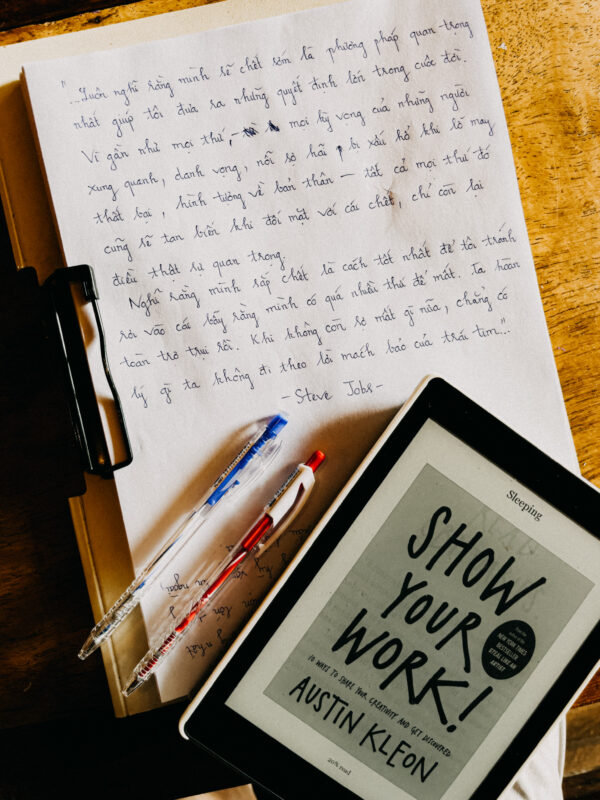 "...Luôn nghĩ rằng mình sẽ chết sớm là phương pháp quan trọng
nhất giúp tôi đưa ra những quyết định lớn trong cuộc đời.
Vì gần như mọi thứ, - mọi kỳ vọng của những người
xung quanh, danh vọng, nỗi sợ hãi bị xấu hổ khi lỡ may
thất bại, hình tượng về bản thân - tất cả mọi thứ đó
cũng sẽ tan biến khi đối mặt với cái chết, chỉ còn lại
điều thật sự quan trọng.
Nghĩ rằng mình sắp chết là cách tốt nhất để tôi tránh
rơi vào cái bẫy rằng mình có quá nhiều thứ để mất. Ta hoàn
toàn trơ trụi rồi. Khi không còn sợ mất gì nữa, chẳng có
lý gì ta không đi theo lời mách bảo của trái tim..."
- Steve Jobs -
Sleeping
SHOW
YOUR
WORK!
From the
author of the
NEW YORK TIMES
BESTSELLER
STEAL LIKE AN
ARTIST
10 WAYS TO SHARE YOUR CREATIVITY AND GET DISCOVERED
AUSTIN KLEON
20% read